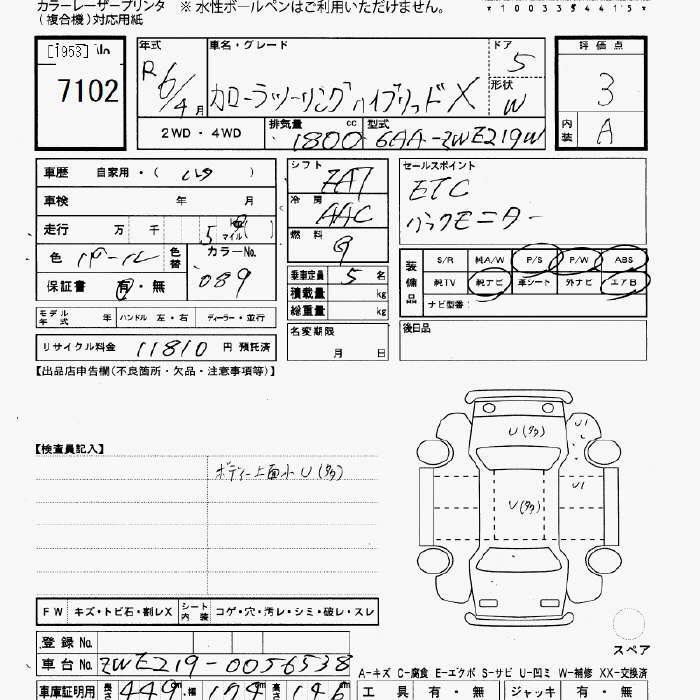 カラーレーザープリンタ ※ 水性ボールペンはご利用いただけません。
(複合機)対応用紙
*10033544​15*
[1953]
7102
年式 R6/4月
車名・グレード カローラツーリングハイブリッドX
ドア 5
形状 W
評価点 3
内装 A
2WD・4WD 排気量 1800cc 型式 6AA-ZWE219W
車歴 自家用・( レンタ )
車検 年 月
走行 万 千 5 マイル( )
色 パール 色替 カラーNo. 089
保証書 有・無
モデル年式 年 ハンドル 左・右 ディーラー・並行
リサイクル料金 11810 円 預託済
シフト
冷房 AAC
燃料 G
乗車定員 5 名
積載量 kg
総重量 kg
名変期限 月 日
セールスポイント
ETC
バックモニター
装備品 S/R 純A/W P/S P/W ABS
純TV 純ナビ 革シート 外ナビ エアB
ナビ型番:
後日品
【出品店申告欄(不良箇所・欠品・注意事項等)】
【検査員記入】
ボディー上面小U(多々)
U(多々)
U1
U(多々)
U1
スペア
FW キズ・トビ石・割レX シート内装 コゲ・穴・汚レ・シミ・破レ・スレ
登録No.
車台No. ZWE219-0056538
A-キズ C-腐食 E-エクボ S-サビ U-凹ミ W-補修 XX-交換済
車庫証明用 長さ 449cm 幅 174cm 高さ 146cm
工具 有・無 ジャッキ 有・無